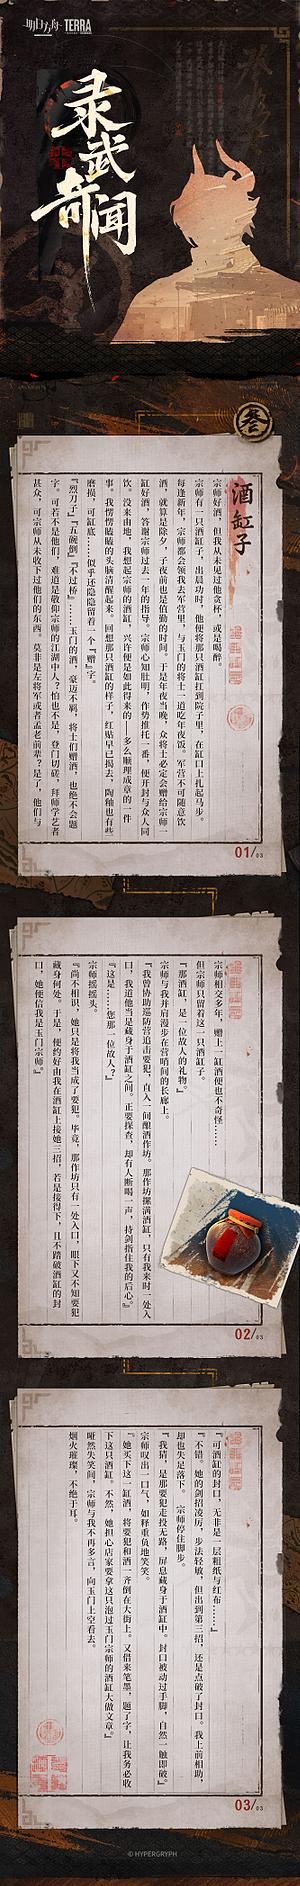 明日方舟
TERRA
录武奇闻
叁
酒缸子
宗师好酒，但我从未见过他贪杯，或是喝醉。
宗师有一只酒缸子，出晨功时，他便将那只酒缸扛到院子里，在缸口上扎起马步。
每逢新年，宗师都会领我去军营里，与玉门的将士一道吃年夜饭。军营不可随意饮
酒，就算是除夕，子夜前也是值勤的时间。于是年夜当晚，众将士必定会赠给宗师一
缸好酒，答谢宗师过去一年的指导。宗师心知肚明，作势推托一番，便开封与众人同
饮。没来由地，我想起宗师的酒缸，兴许便是如此得来的——多么顺理成章的一件
事。我愣愣瞌瞌的头脑清醒起来，回想那只酒缸的样子，红贴早已揭去，陶釉也有些
磨损，可缸底……似乎还隐隐留着一个『赠』字。
『烈刀子』『五碗倒』『不过桥』……玉门的酒，豪迈不羁，将士们赠酒，也绝不会题
字。可若不是他们，难道是敬仰宗师的江湖中人？怕也不是，登门切磋、拜师学艺者
甚众，可宗师从未收下过他们的东西。莫非是左将军或者孟老前辈？是了，他们与
01/03
宗师相交多年，赠上一缸酒便也不奇怪……
但宗师只留着这一只酒缸子。
『那酒缸，是一位故人的礼物。』
宗师与我并肩漫步在营哨间的长廊上。
『我曾协助巡防营追击要犯，直入一间酿酒作坊。那作坊摆满酒缸，只有我来时一处入
口，我道他当是藏身于酒缸之间。正要探查，却有人断喝一声，持剑指住我的后心。』
『这是……您那一位故人？』
宗师摇摇头。
『尚不相识，她只是将我当成了要犯。毕竟，那作坊只有一处入口，眼下又不知要犯
藏身何处。于是，便约好由我在酒缸上接她三招，若是接得下，且不踏破酒缸的封
口，她便信我是玉门宗师。』
02/03
『可酒缸的封口，无非是一层粗纸与红布……』
『不错。她的剑招凌厉，步法轻敏，但出到第三招，还是点破了封口。我上前相助，
却也失足落下。』宗师停住脚步。
『我猜，是那要犯走投无路，屏息藏身于酒缸中。封口被动过手脚，自然一触即破。』
宗师叹出一口气，如释重负地笑笑。
『她买下这一缸酒，将要犯和酒一齐倒在大街上。又借来笔墨，题了字，让我务必收
下这只酒缸。不然，她担心店家要拿这只泡过玉门宗师的酒缸大做文章。』
哑然失笑间，宗师与我不再多言，向玉门上空看去。
烟火璀璨，不绝于耳。
03/03
© HYPERGRYPH